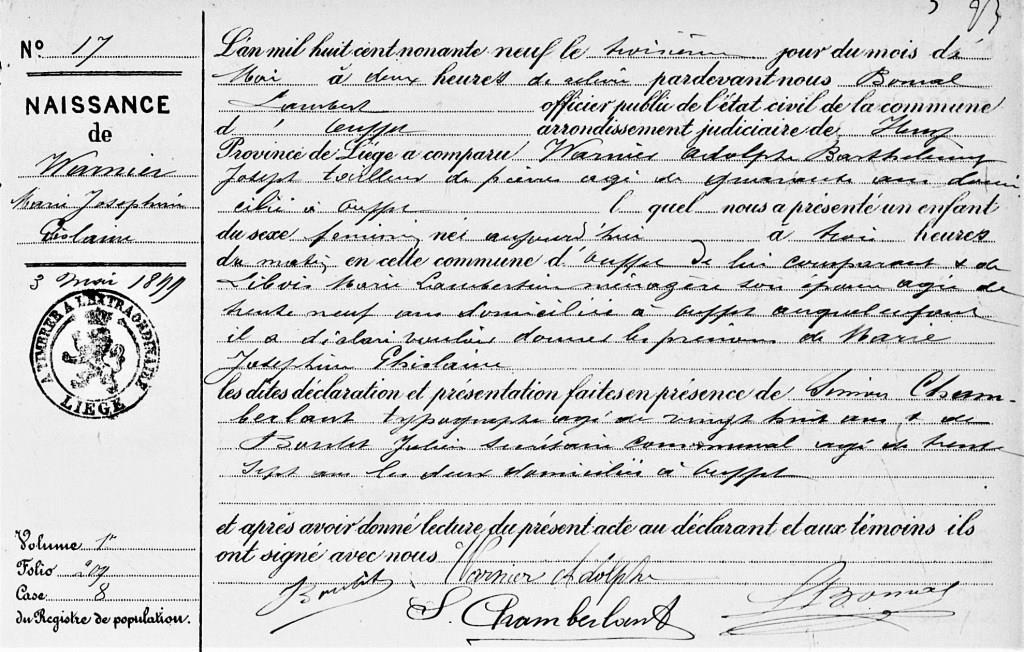 N° 17
NAISSANCE
de
Warnier
Marie Josephine
Ghislaine
3 Mai 1899
A TIMBRER A L'EXTRAORDINAIRE
LIEGE
Volume 1r
Folio 209
Case 8
du Registre de population.
L'an mil huit cent nonante neuf le troisième jour du mois de
Mai à deux heures de relevée pardevant nous Bonal
Lambert officier public de l'état civil de la commune
d'Ouffet arrondissement judiciaire de Huy
Province de Liège a comparu Warnier Adolphe Barthélemy
Joseph tailleur de pierres agé de quarante ans domi
cilié à Ouffet lequel nous a présenté un enfant
du sexe feminin né aujourd'hui à trois heures
du matin en cette commune d'Ouffet de lui comparant & de
Libois Marie Lambertine ménagère son épouse agée de
trente neuf ans domiciliée à Ouffet auquel enfant
il a déclaré vouloir donner les prénoms de Marie
Josephine Ghislaine
les dites déclaration et présentation faites en présence de Simon Cham-
berlant typographe agé de vingt huit ans & de
Boulet Julien secrétaire communal agé de trente
sept ans les deux domiciliés à Ouffet
et après avoir donné lecture du présent acte au déclarant et aux témoins ils
ont signé avec nous
Boulet Warnier Adolphe
S. Chamberlant L Bonal